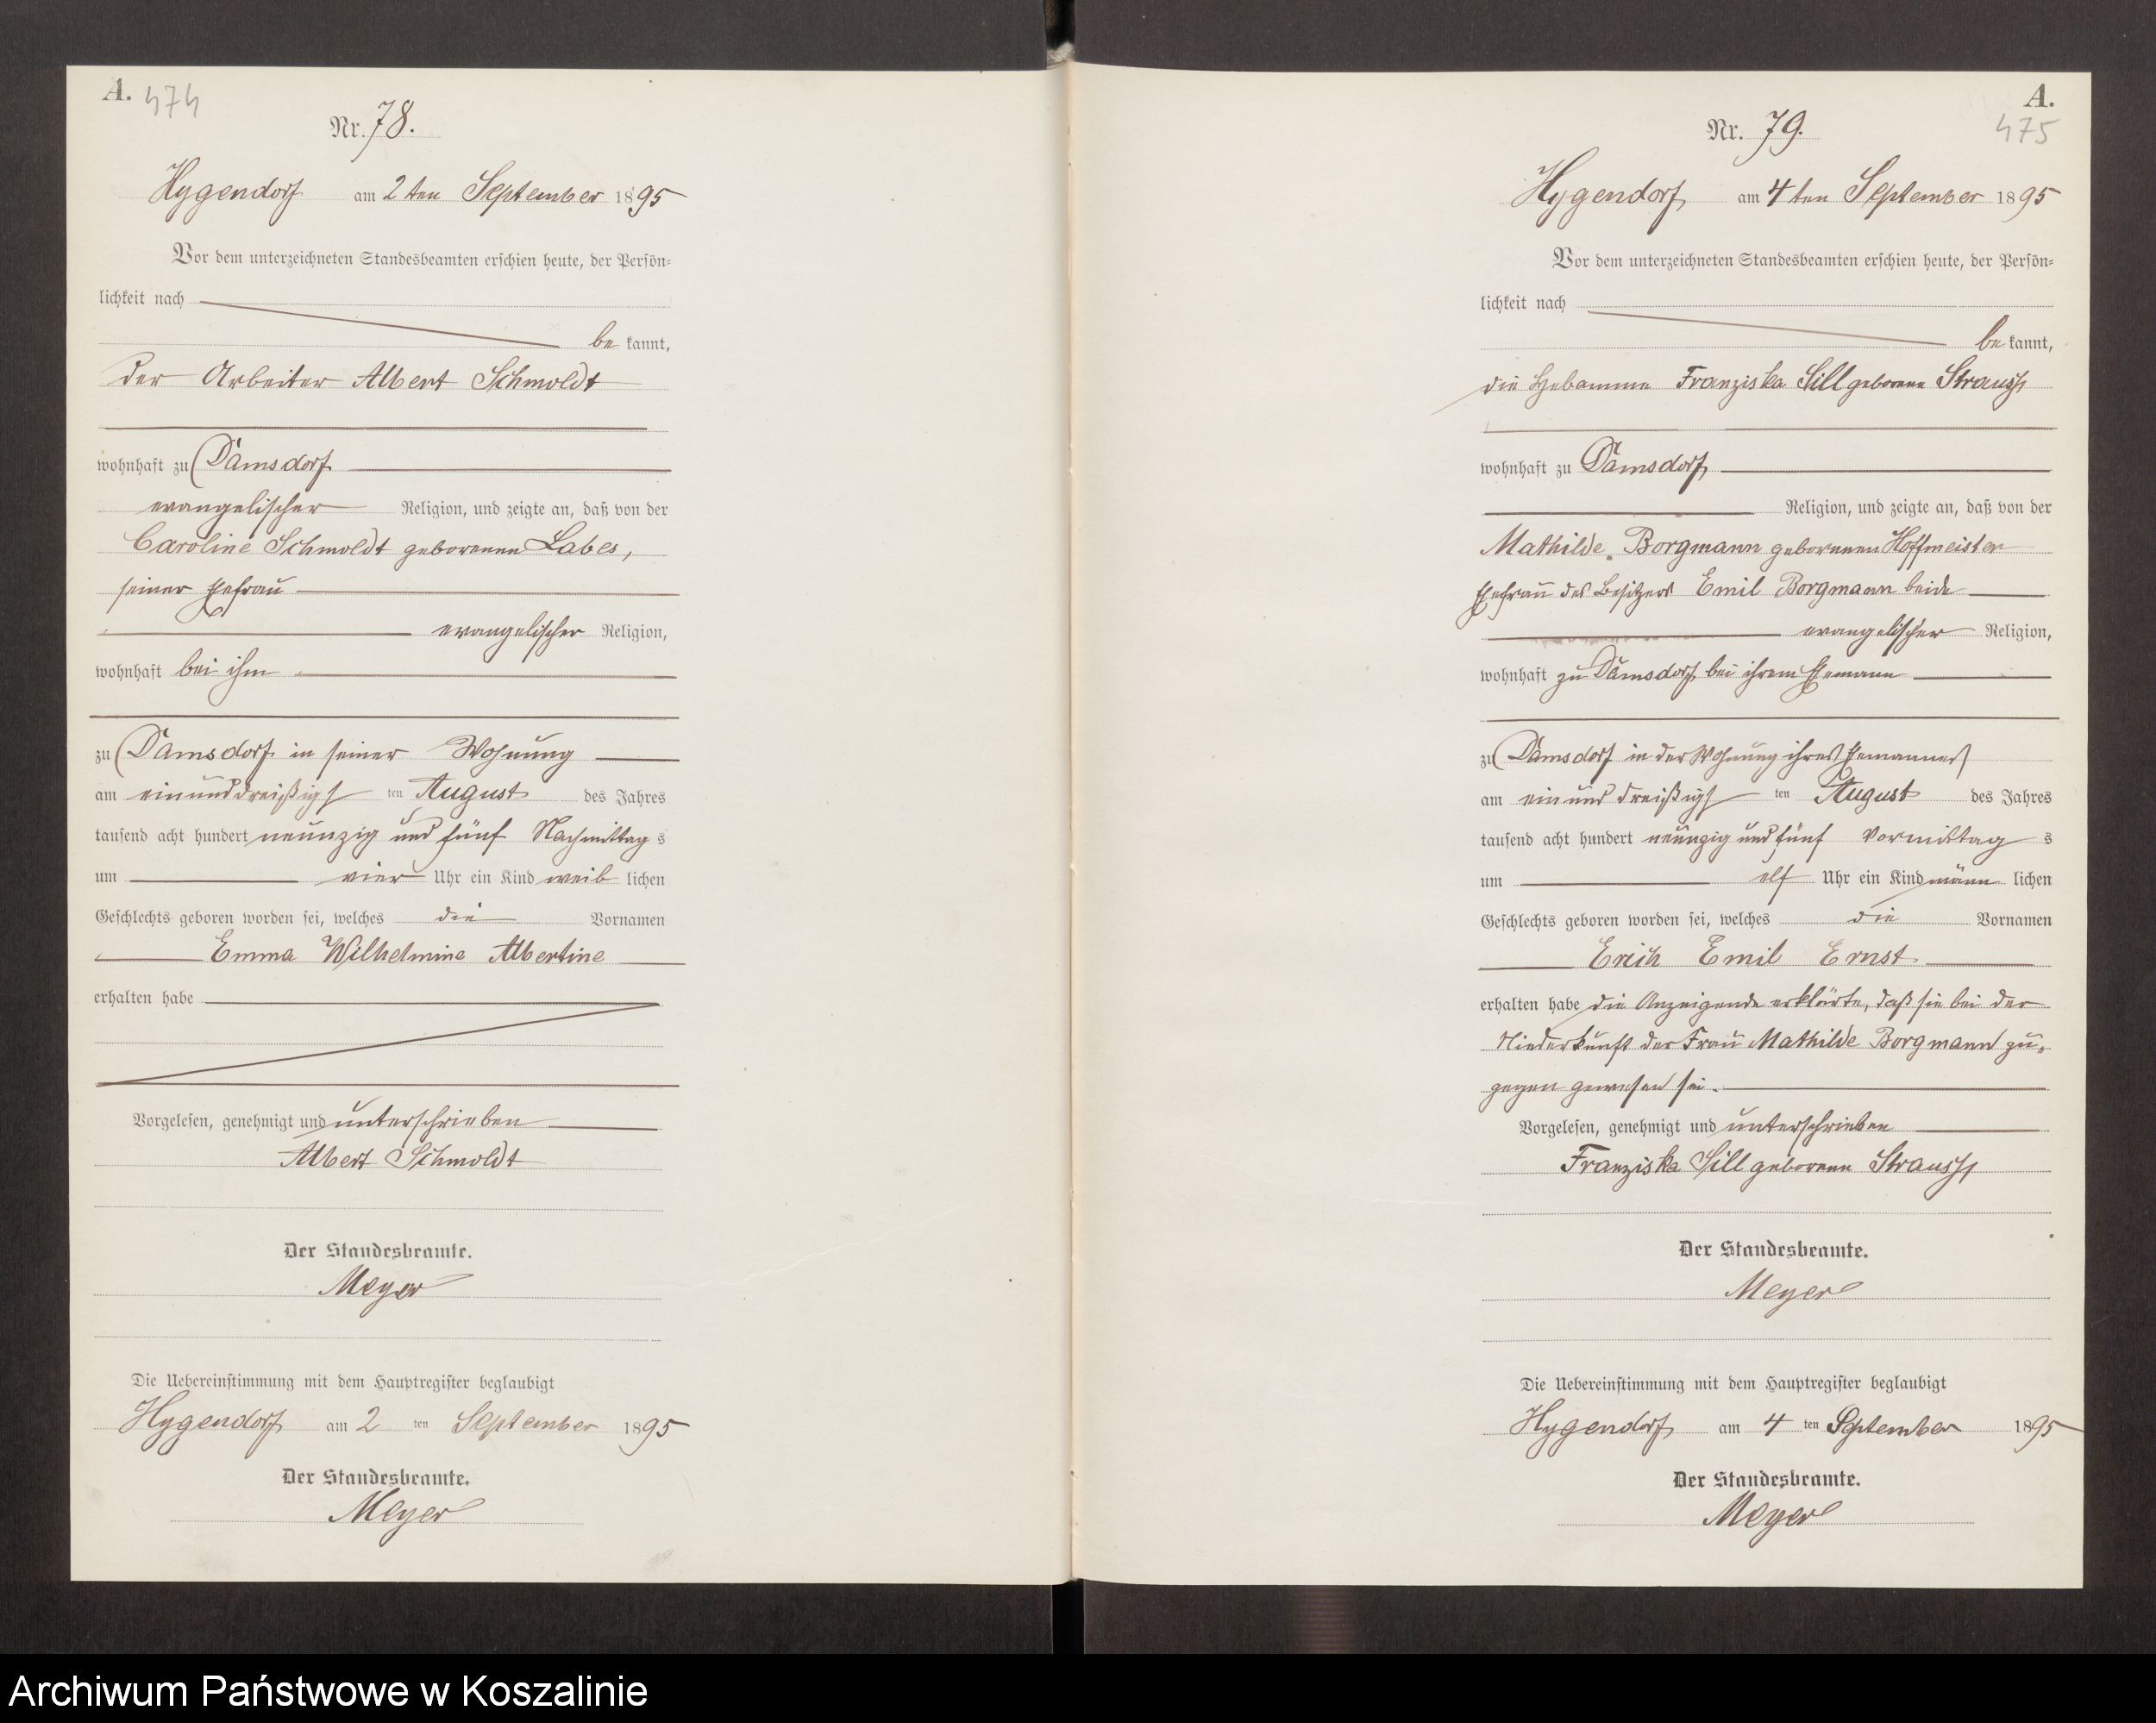 A. 474
Nr. 78.
Hygendorf am 2ten September 1895
Vor dem unterzeichneten Standesbeamten erschien heute, der Persön=
lichkeit nach
be kannt,
der Arbeiter Albert Schmoldt
wohnhaft zu Damsdorf
evangelischer Religion, und zeigte an, daß von der
Caroline Schmoldt geborenen Labes,
seiner Ehefrau
evangelischer Religion,
wohnhaft bei ihm
zu Damsdorf in seiner Wohnung
am einunddreißigs ten August des Jahres
tausend acht hundert neunzig und fünf Nachmittag s
um vier Uhr ein Kind weib lichen
Geschlechts geboren worden sei, welches die Vornamen
Emma Wilhelmine Albertine
erhalten habe
Vorgelesen, genehmigt und unterschrieben
Albert Schmoldt
Der Standesbeamte.
Meyer
Die Uebereinstimmung mit dem Hauptregister beglaubigt
Hygendorf am 2 ten September 1895
Der Standesbeamte.
Meyer
A.
475
Nr. 79.
Hygendorf am 4ten September 1895
Vor dem unterzeichneten Standesbeamten erschien heute, der Persön=
lichkeit nach
be kannt,
die Hebamme Franziska Sill geborene Strauss
wohnhaft zu Damsdorf
Religion, und zeigte an, daß von der
Mathilde Borgmann geborenen Hoffmeister
Ehefrau des Besitzers Emil Borgmann beide
evangelischer Religion,
wohnhaft zu Damsdorf bei ihrem Ehemann
zu Damsdorf in der Wohnung ihres Ehemannes
am einunddreißigs ten August des Jahres
tausend acht hundert neunzig und fünf Vormittag s
um elf Uhr ein Kind männ lichen
Geschlechts geboren worden sei, welches die Vornamen
Erich Emil Ernst
erhalten habe die Anzeigende erklärte, daß sie bei der
Niederkunft der Frau Mathilde Borgmann zu=
gegen gewesen sei.
Vorgelesen, genehmigt und unterschrieben
Franziska Sill geborene Strauss
Der Standesbeamte.
Meyer
Die Uebereinstimmung mit dem Hauptregister beglaubigt
Hygendorf am 4 ten September 1895
Der Standesbeamte.
Meyer
Archiwum Państwowe w Koszalinie